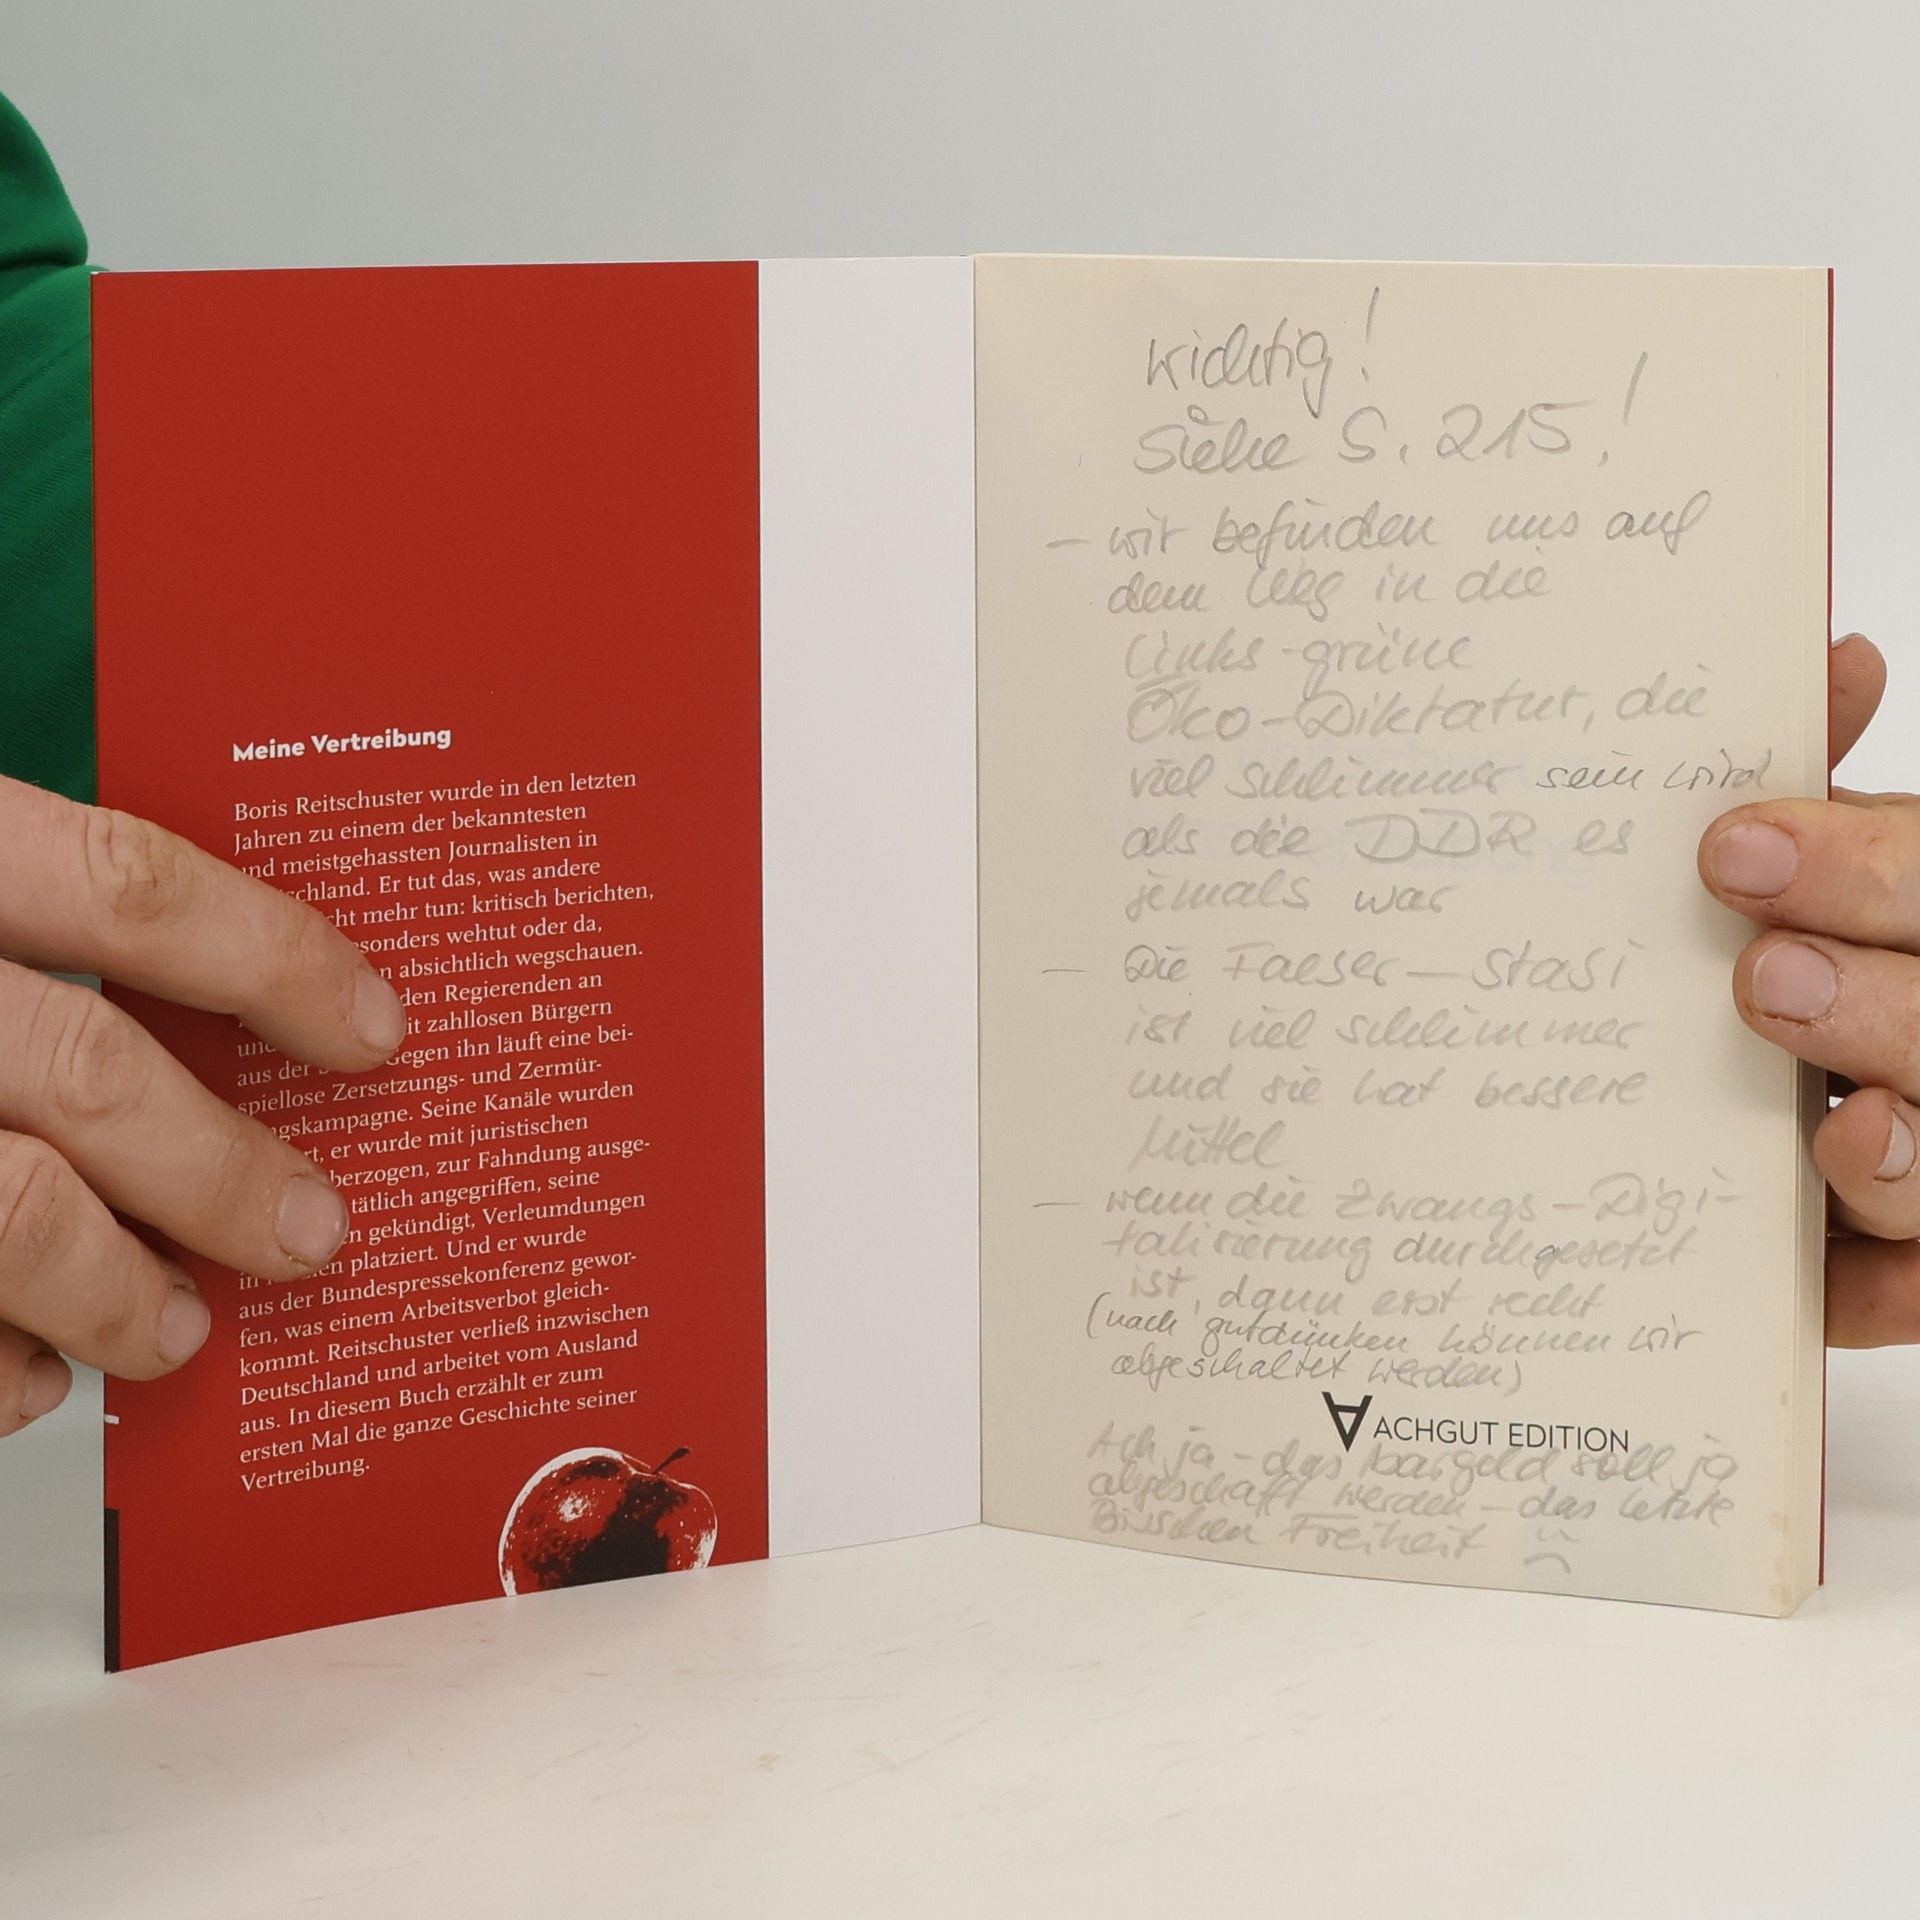 Meine Vertreibung
Boris Reitschuster wurde in den letzten
Jahren zu einem der bekanntesten
und meistgehassten Journalisten in
schland. Er tut das, was andere
cht mehr tun: kritisch berichten,
sonders wehtut oder da,
n absichtlich wegschauen.
den Regierenden an
und it zahllosen Bürgern
aus der Gegen ihn läuft eine bei-
spiellose Zersetzungs- und Zermür-
ngskampagne. Seine Kanäle wurden
rt, er wurde mit juristischen
berzogen, zur Fahndung ausge-
tätlich angegriffen, seine
n gekündigt, Verleumdungen
in en platziert. Und er wurde
aus der Bundespressekonferenz gewor-
fen, was einem Arbeitsverbot gleich-
kommt. Reitschuster verließ inzwischen
Deutschland und arbeitet vom Ausland
aus. In diesem Buch erzählt er zum
ersten Mal die ganze Geschichte seiner
Vertreibung.
wichtig!
Siehe S. 215!
- wir befinden uns auf
dem Weg in die
Links-grüne
Öko-Diktatur, die
viel schlimmer sein wird
als die DDR es
jemals war
- Die Faeser-Stasi
ist viel schlimmer
und sie hat bessere
Mittel
- wenn die Zwangs-Digi-
talisierung durchgesetzt
ist, dann erst recht
(nach gutdünken können wir
abgeschaltet werden)
ACHGUT EDITION
Ach ja - das bargeld soll ja
abgeschafft werden - das letzte
Bisschen Freiheit